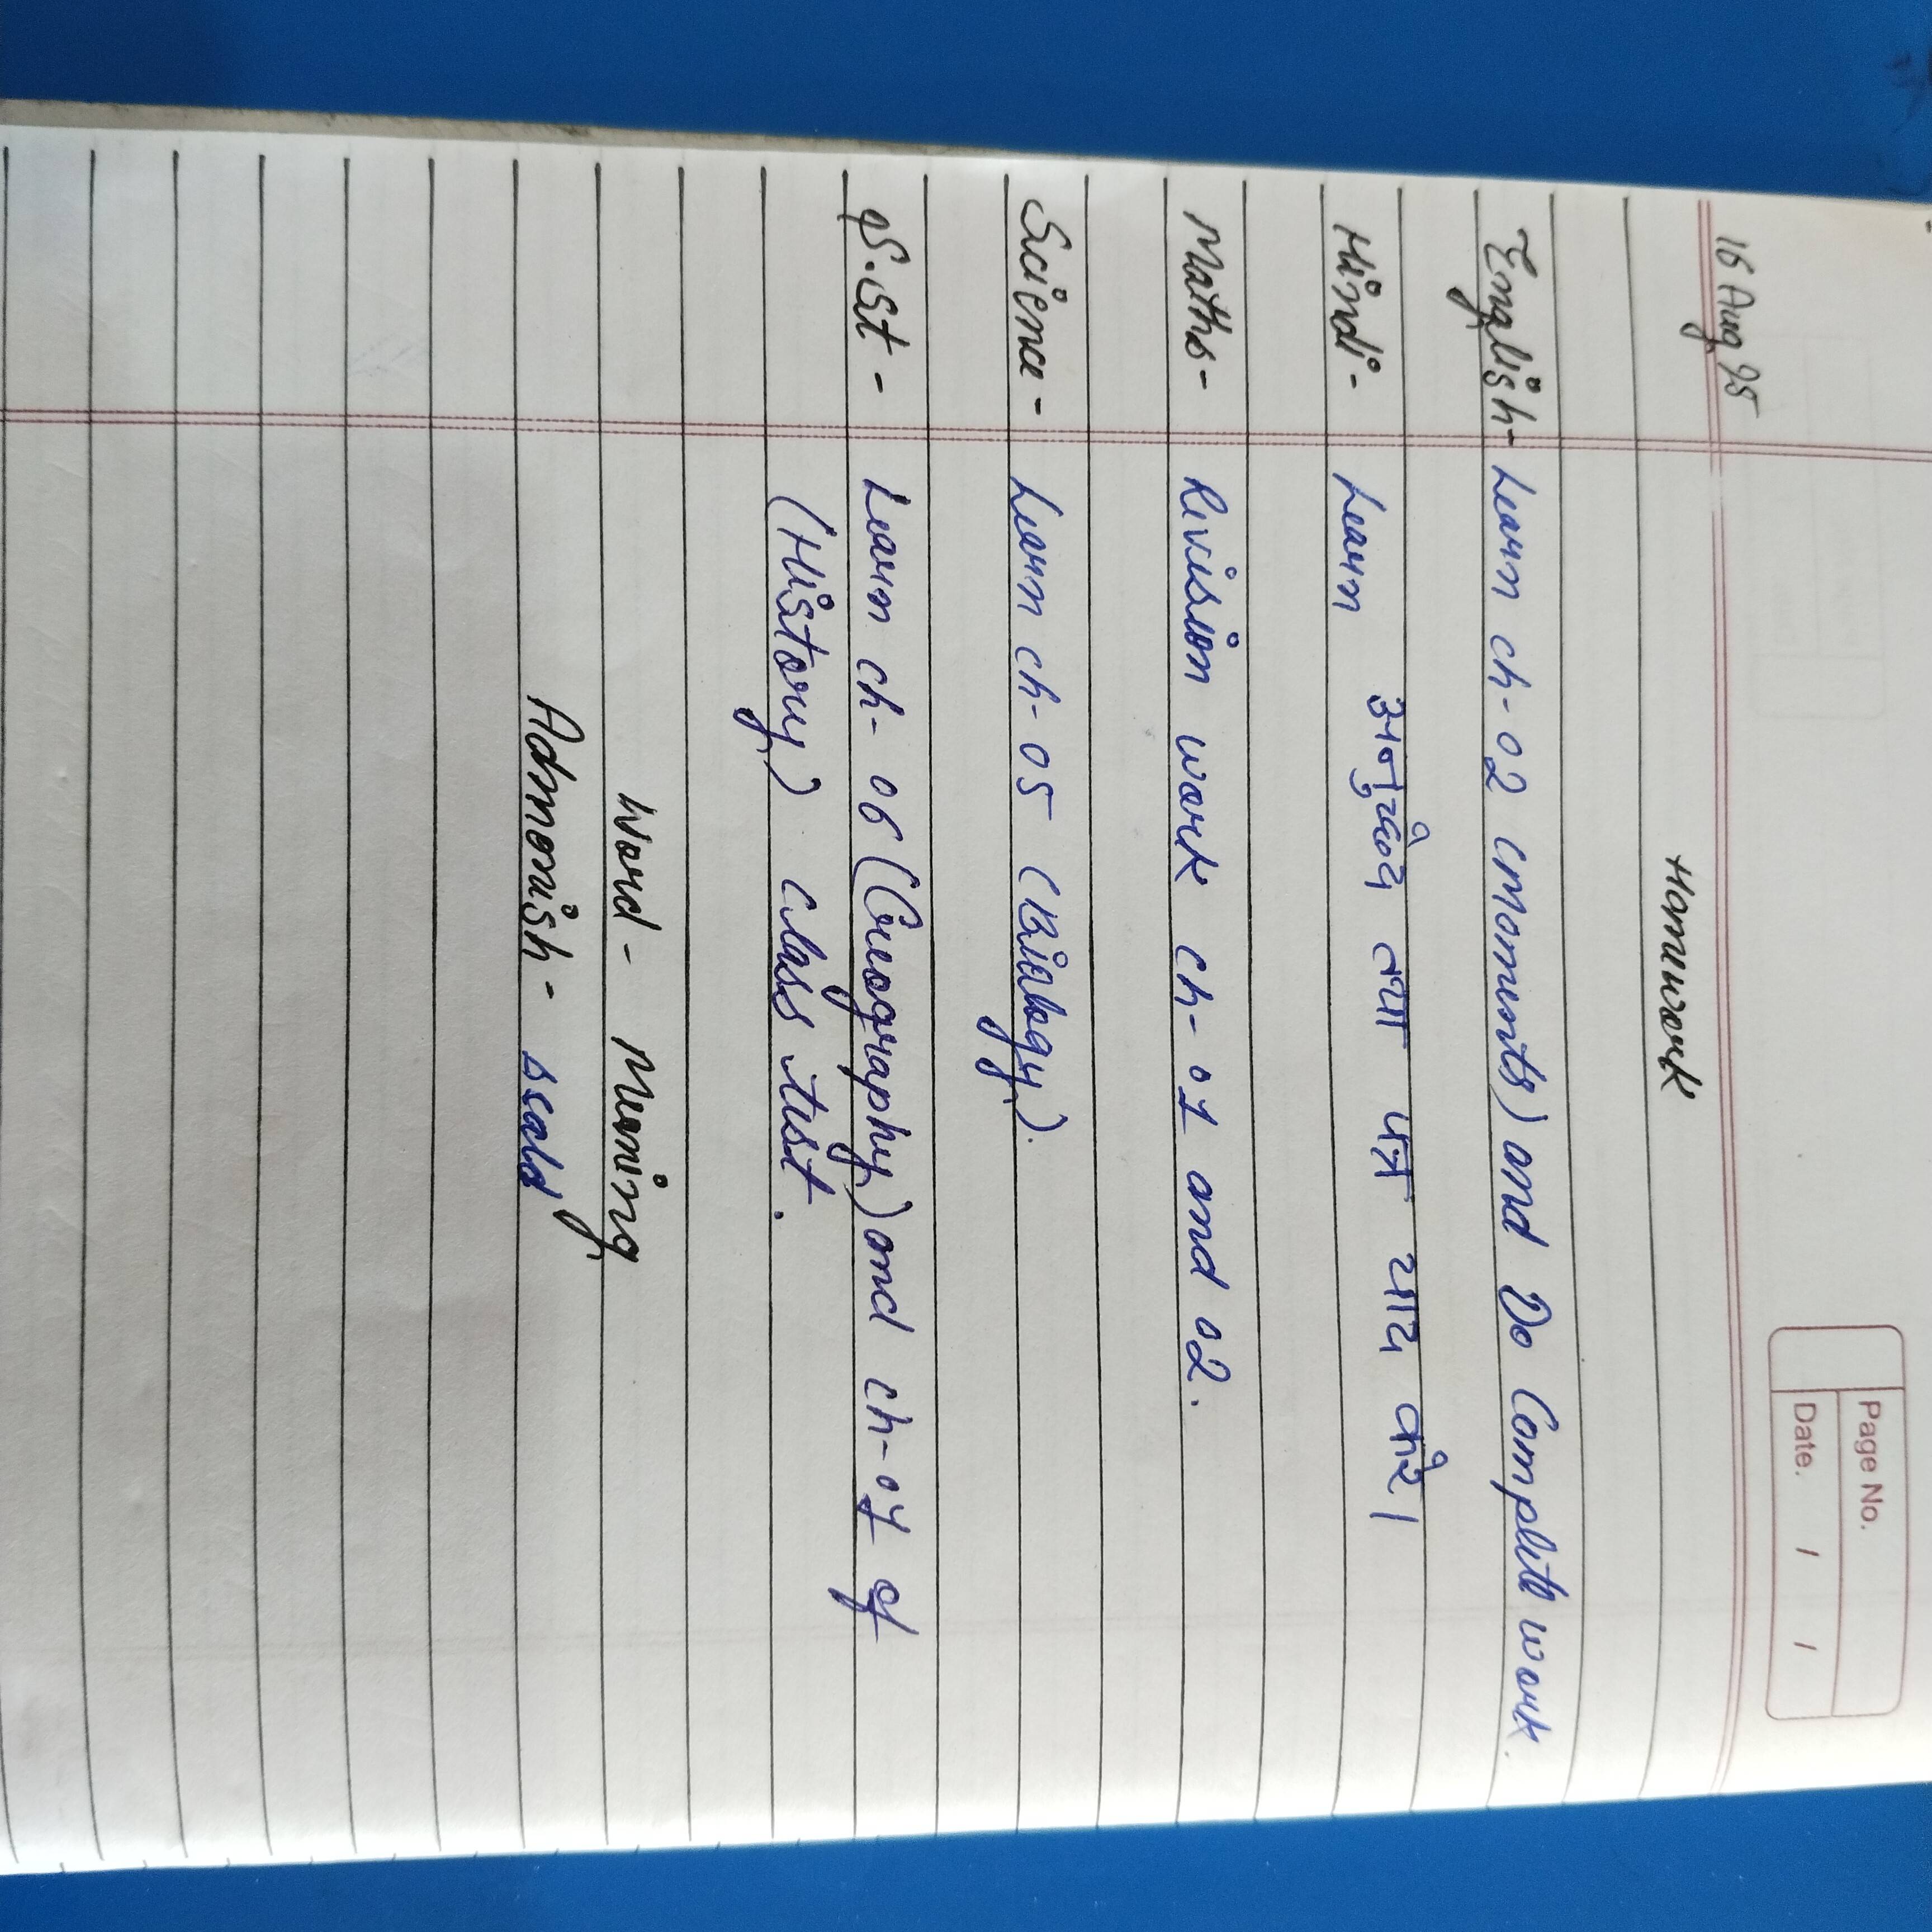 Page No.
Date. / /
16 Aug 25
Homework
English- Learn ch-02 (moments) and Do Complete work.
Hindi- Learn अनुच्छेद तथा पत्र याद करे।
Maths- Revision work ch-01 and 02.
Science- Learn ch-05 (Biology).
S.St - Learn ch-06 (Geography) and ch-01 of
(History) class test.
Word - Meaning
Admonish- scold